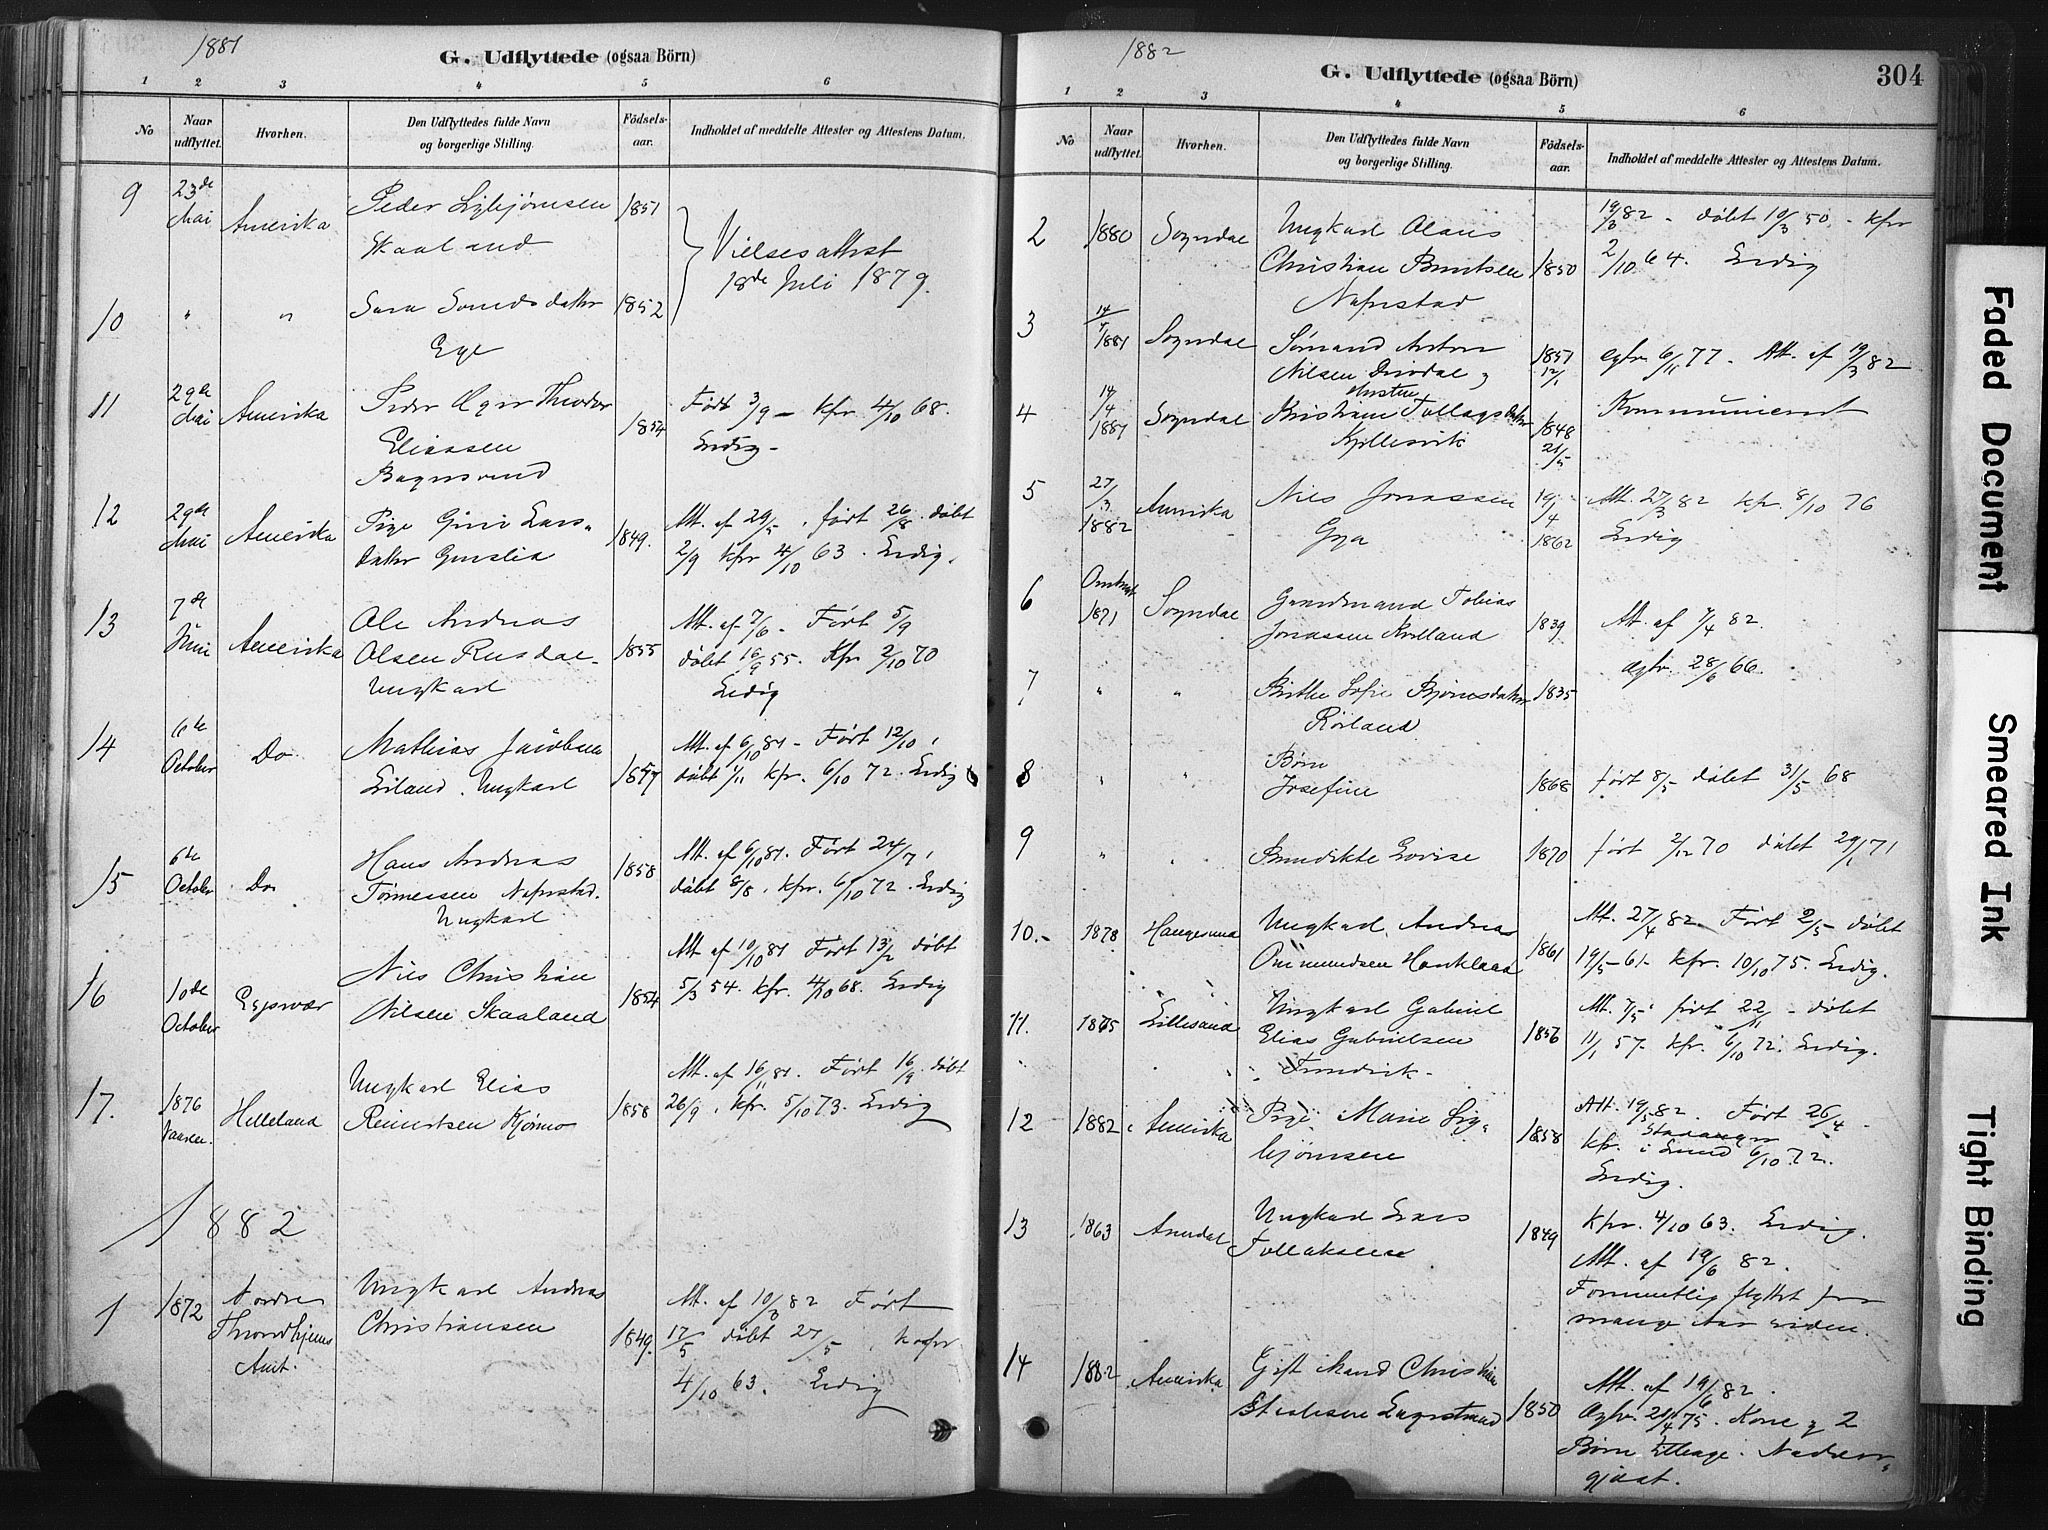 1881
G. Udflyttede (ogsaa Börn)
1 2 3 4 5 6
No
Naar udflyttet.
Hvorhen.
Den Udflyttedes fulde Navn og borgerlige Stilling.
Födsels-aar.
Indholdet af meddelte Attester og Attestens Datum.
9 23de Mai Amerika Peder Sigbjørnsen 1851
Skaaland
Vielsesattest
18de Juli 1879.
10 " " Sara 1852
Ege
11 29de Mai Amerika Peder Theodor 1854 Født 3/9 - kfr 4/10 68.
Eliassen Ledig -
12 29de Mai Amerika Pige Lars- 1849. Att. af 29/5, født 26/8. døbt
datter 2/9 kfr 4/10 63. Ledig.
13 7de Juni Amerika Ole Andreas 1855 Att. af 7/6 - Født 5/9
Olsen Rusdal - døbt 16/9 55. Kfr 2/10 70
Ungkarl Ledig
14 6te October Do Mathias Jacobsen 1857 Att. af 6/10 81 - Født 12/10,
Eiland. Ungkarl døbt 1/11 kfr. 6/10 72. Ledig
15 6te October Do Hans Andreas 1858 Att. af 6/10 81. Født 24/7,
Tørresen døbt 8/8. kfr. 6/10 72. Ledig
Ungkarl
16 10de October Nils Christian 1854 Att af 10/10 81 Født 13/2 døbt
Nilsen Skaaland 5/3 54. kfr. 4/10 68. Ledig
17. 1876 Vaaren. Helleland Ungkarl Elias 1858 Att. af 16/11 81. Født 16/9. døbt
Reinertsen 26/9, kfr. 5/10 73. Ledig
1882
1 1872 Nordre Ungkarl Andreas 1849. Att. af 10/3 82 Født
Throndhjems Christiansen 17/5 døbt 27/5,
Amt. 4/10 63. Ledig
1882
G. Udflyttede (ogsaa Börn)
304
1 2 3 4 5 6
No
Naar udflyttet.
Hvorhen.
Den Udflyttedes fulde Navn og borgerlige Stilling.
Födsels-aar.
Indholdet af meddelte Attester og Attestens Datum.
2 1880 Sogndal Ungkarl Olaus 1850 19/3 82 - døbt 10/3 50 - kfr
Christian Berntsen 2/10 64. Ledig
3 14/4 1881 Sogndal Anton 1857 12/1 6/11 77. Att. af 19/3 82
Nilsen
4 14/4 1881 Sogndal Tollagsdatter 1848 21/5
5 27/3 1882 Amerika Nils Jonassen 19/4 1862 Att. 27/3 82 kfr. 8/10 76
Gya Ledig
6 1871 Sogndal Gaardmand Tobias 1839 Att. af 7/4 82.
Jonassen 28/6 66.
7 " " Birthe Sofie Bjørnsdatter 1835
Rørland
8 " " Børn
Josefine 1868 født 8/5 døbt 31/5 68
9 " " Benedikte Lovise 1870 født 2/12 70 døbt 29/1 71
10. - 1878 Haugesund Ungkarl Andreas 1861 Att. 27/4 82. Født 2/5 - døbt
Ommundsen 19/5 - 61. kfr. 10/10 75. Ledig.
11. 1875 Lillesand Ungkarl Gabriel 1856 Att. 7/5 født 22/11 - døbt
Elias Gabrielsen 11/1 57. kfr. 6/10 72. Ledig.
12 1882 Amerika Pige Marie Sig- 1858 Att. 19/5 82. Født 26/4 -
bjørnsen kfr. i Lund 6/10 72.
Ledig.
13 1863 Arendal Ungkarl Lars 1849 Kfr. 4/10 63. Ledig.
Tollaksen Att. af 19/6 82.
Formentlig flyttet for
mange Aar siden.
14 1882 Amerika Gift Mand Christian 1850 Att. af 19/6 82.
75. Kone og 2
Børn
Faded Document
Smeared Ink
Tight Binding